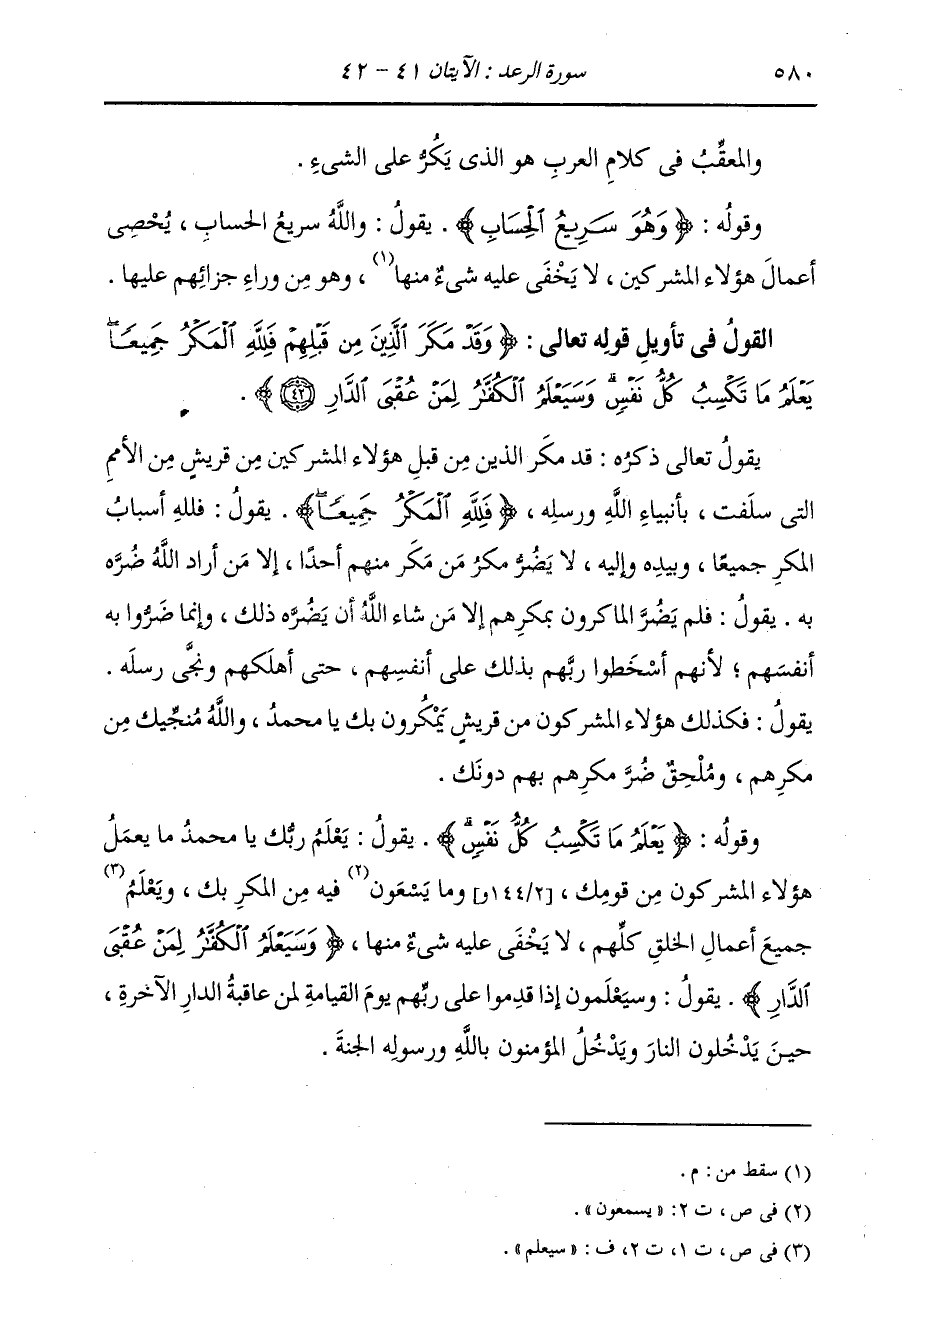 ٥٨٠ سورة الرعد : الآيتان ٤١ - ٤٢
والمعقِّبُ فى كلامِ العربِ هو الذى يَكُرُّ على الشىءِ .
وقولُه : ﴿ وَهُوَ سَرِيعُ ٱلْحِسَابِ ﴾ . يقولُ : واللَّهُ سريعُ الحسابِ ، يُحْصِى
أعمالَ هؤلاء المشركين ، لا يَخْفَى عليه شىءٌ منها(١) ، وهو مِن وراءِ جزائِهم عليها .
القولُ فى تأويلِ قولِه تعالى : ﴿ وَقَدْ مَكَرَ ٱلَّذِينَ مِن قَبْلِهِمْ فَلِلَّهِ ٱلْمَكْرُ جَمِيعًاۖ
يَعْلَمُ مَا تَكْسِبُ كُلُّ نَفْسٍۗ وَسَيَعْلَمُ ٱلْكُفَّٰرُ لِمَنْ عُقْبَى ٱلدَّارِ ٤٢ ﴾ .
يقولُ تعالى ذكرُه : قد مكَر الذين مِن قبلِ هؤلاء المشركين مِن قريشٍ مِن الأممِ
التى سلَفت ، بأنبياءِ اللَّهِ ورسلِه ، ﴿ فَلِلَّهِ ٱلْمَكْرُ جَمِيعًاۖ ﴾ . يقولُ : فللهِ أسبابُ
المكرِ جميعًا ، وبيدِه وإليه ، لا يَضُرُّ مكرُ مَن مَكَر منهم أحدًا ، إلا مَن أراد اللَّهُ ضُرَّه
به . يقولُ : فلم يَضُرَّ الماكرون بمكرِهم إلا مَن شاء اللَّهُ أن يَضُرَّه ذلك ، وإنما ضَرُّوا به
أنفسَهم ؛ لأنهم أسْخَطوا ربَّهم بذلك على أنفسِهم ، حتى أهلَكهم ونجَّى رسلَه .
يقولُ : فكذلك هؤلاء المشركون من قريشٍ يَمْكُرون بك يا محمدُ ، واللَّهُ مُنجِّيك مِن
مكرِهم ، ومُلْحِقٌ ضُرَّ مكرِهم بهم دونَك .
وقولُه : ﴿ يَعْلَمُ مَا تَكْسِبُ كُلُّ نَفْسٍۗ ﴾ . يقولُ : يَعْلَمُ ربُّك يا محمدُ ما يعملُ
هؤلاء المشركون مِن قومِك ، [١٤٤/٢و] وما يَسْعَون(٢) فيه مِن المكرِ بك ، ويَعْلَمُ(٣)
جميعَ أعمالِ الخلقِ كلِّهم ، لا يَخْفَى عليه شىءٌ منها ، ﴿ وَسَيَعْلَمُ ٱلْكُفَّٰرُ لِمَنْ عُقْبَى
ٱلدَّارِ ﴾ . يقولُ : وسيَعْلَمون إذا قدِموا على ربِّهم يومَ القيامةِ لمن عاقبةُ الدارِ الآخرةِ ،
حينَ يَدْخُلون النارَ ويَدْخُلُ المؤمنون باللَّهِ ورسولِه الجنةَ .
(١) سقط من : م .
(٢) فى ص ، ت ٢ : « يسمعون » .
(٣) فى ص ، ت ١ ، ت ٢ ، ف : « سيعلم » .